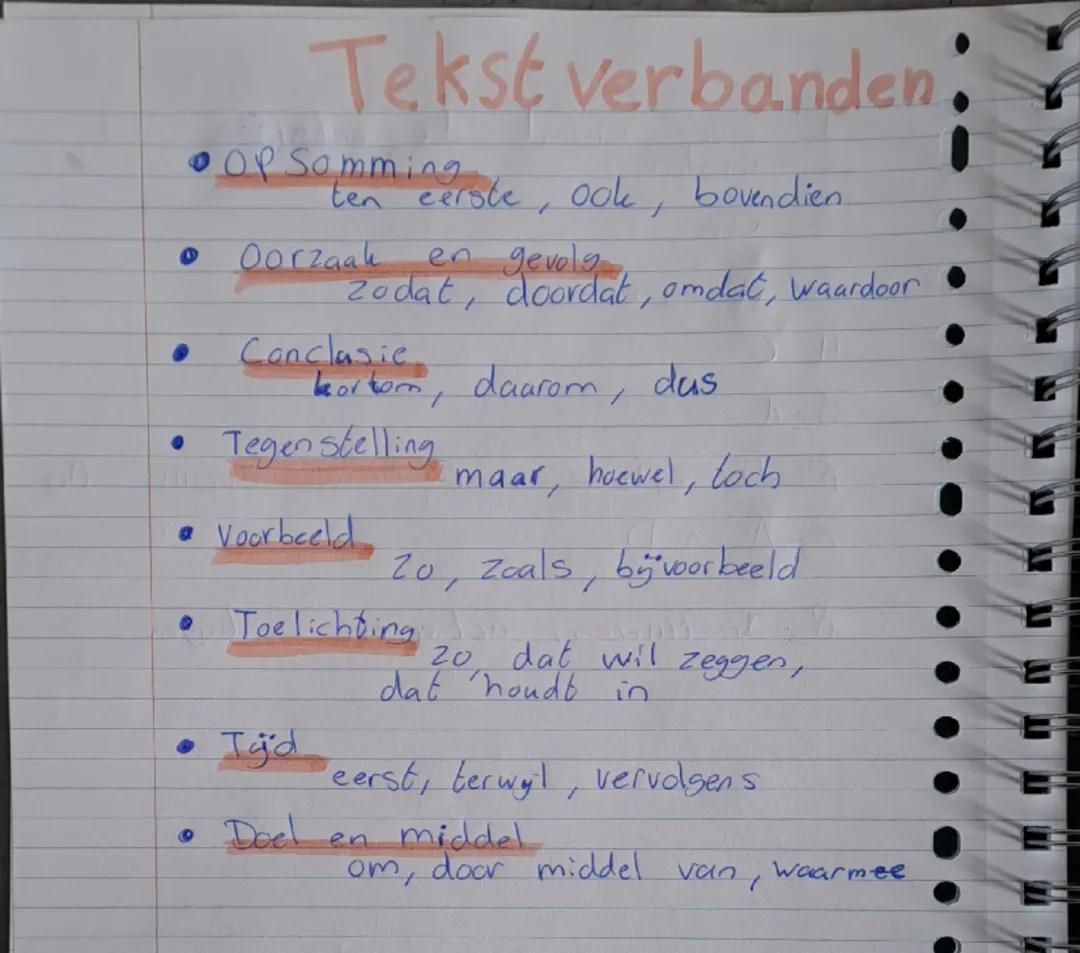 Tekst verbanden
• Opsomming
ten eerste, ook, bovendien
• Oorzaak en gevolg
zodat, doordat, omdat, waardoor
• Conclusie
kortom, daarom, dus
• Tegenstelling
maar, hoewel, toch
• Voorbeeld
zo, zoals, bijvoorbeeld
• Toelichting
zo, dat wil zeggen,
dat houdt in
• Tijd
eerst, terwijl, vervolgens
• Doel en middel
om, door middel van, waarmee